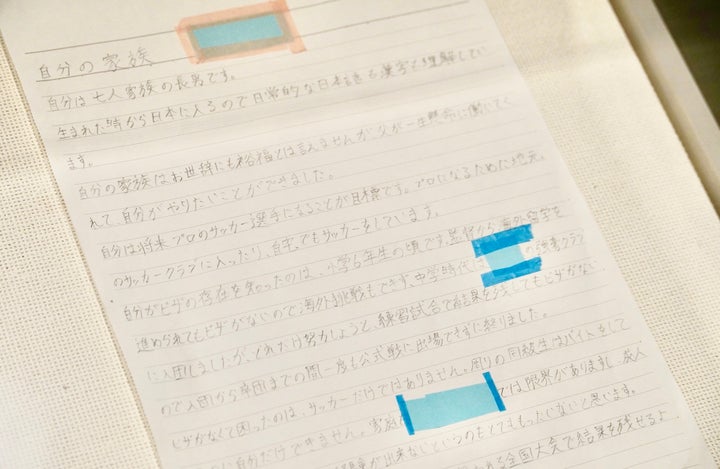 自分の家族
自分は七人家族の長男です。
生まれた時から日本に入るので日常的な日本語も漢字も理解してい
ます。
自分の家族はお世辞にも裕福とは言えませんが、父が一生懸命に働いてく
れて、自分がやりたいことができました。
自分は将来プロのサッカー選手になることが目標です。プロになるために地元
のサッカークラブに入ったり、自宅でもサッカーをしています。
自分がビザの存在を知ったのは、小学6年生の頃です。監督から海外留学を
進められてもビザがないので海外挑戦もできず、中学時代 の強豪クラブ
に入団しましたが、どれだけ努力しようと、練習試合で結果を残してもビザがない
ので入団から卒団までの間一度も公式戦に出場できずに終りました。
ビザがなくて困ったのは、サッカーだけではありません。周りの同級生はバイトをして
のに自分だけできません。家族 では限界がありますし、成人
が出来ないというのもとてももったいないと思います。
れる全国大会で結果を残せるよ